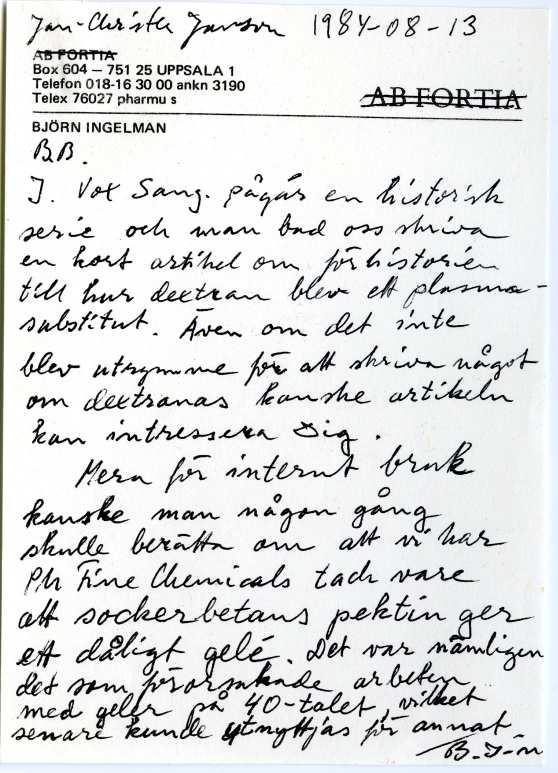 Jan-Christer Janson 1984-08-13
AB FORTIA
Box 604 – 751 25 UPPSALA 1
Telefon 018-16 30 00 ankn 3190
Telex 76027 pharmu s
AB FORTIA
BJÖRN INGELMAN
B.B.
I. Vox Sang. pågår en historisk
serie och man bad oss skriva
en kort artikel om förhistorien
till hur dextran blev ett plasma-
substitut. Även om det inte
blev utrymme för att skriva något
om dextranas kanske artikeln
kan intressera Dig.
Mera för internt bruk
kanske man någon gång
skulle berätta om att vi har
Ph Fine Chemicals tack vare
att sockerbetans pektin ger
ett dåligt gelé. Det var nämligen
det som förorsakade arbeten
med geler på 40-talet, vilket
senare kunde utnyttjas för annat
B. I-n